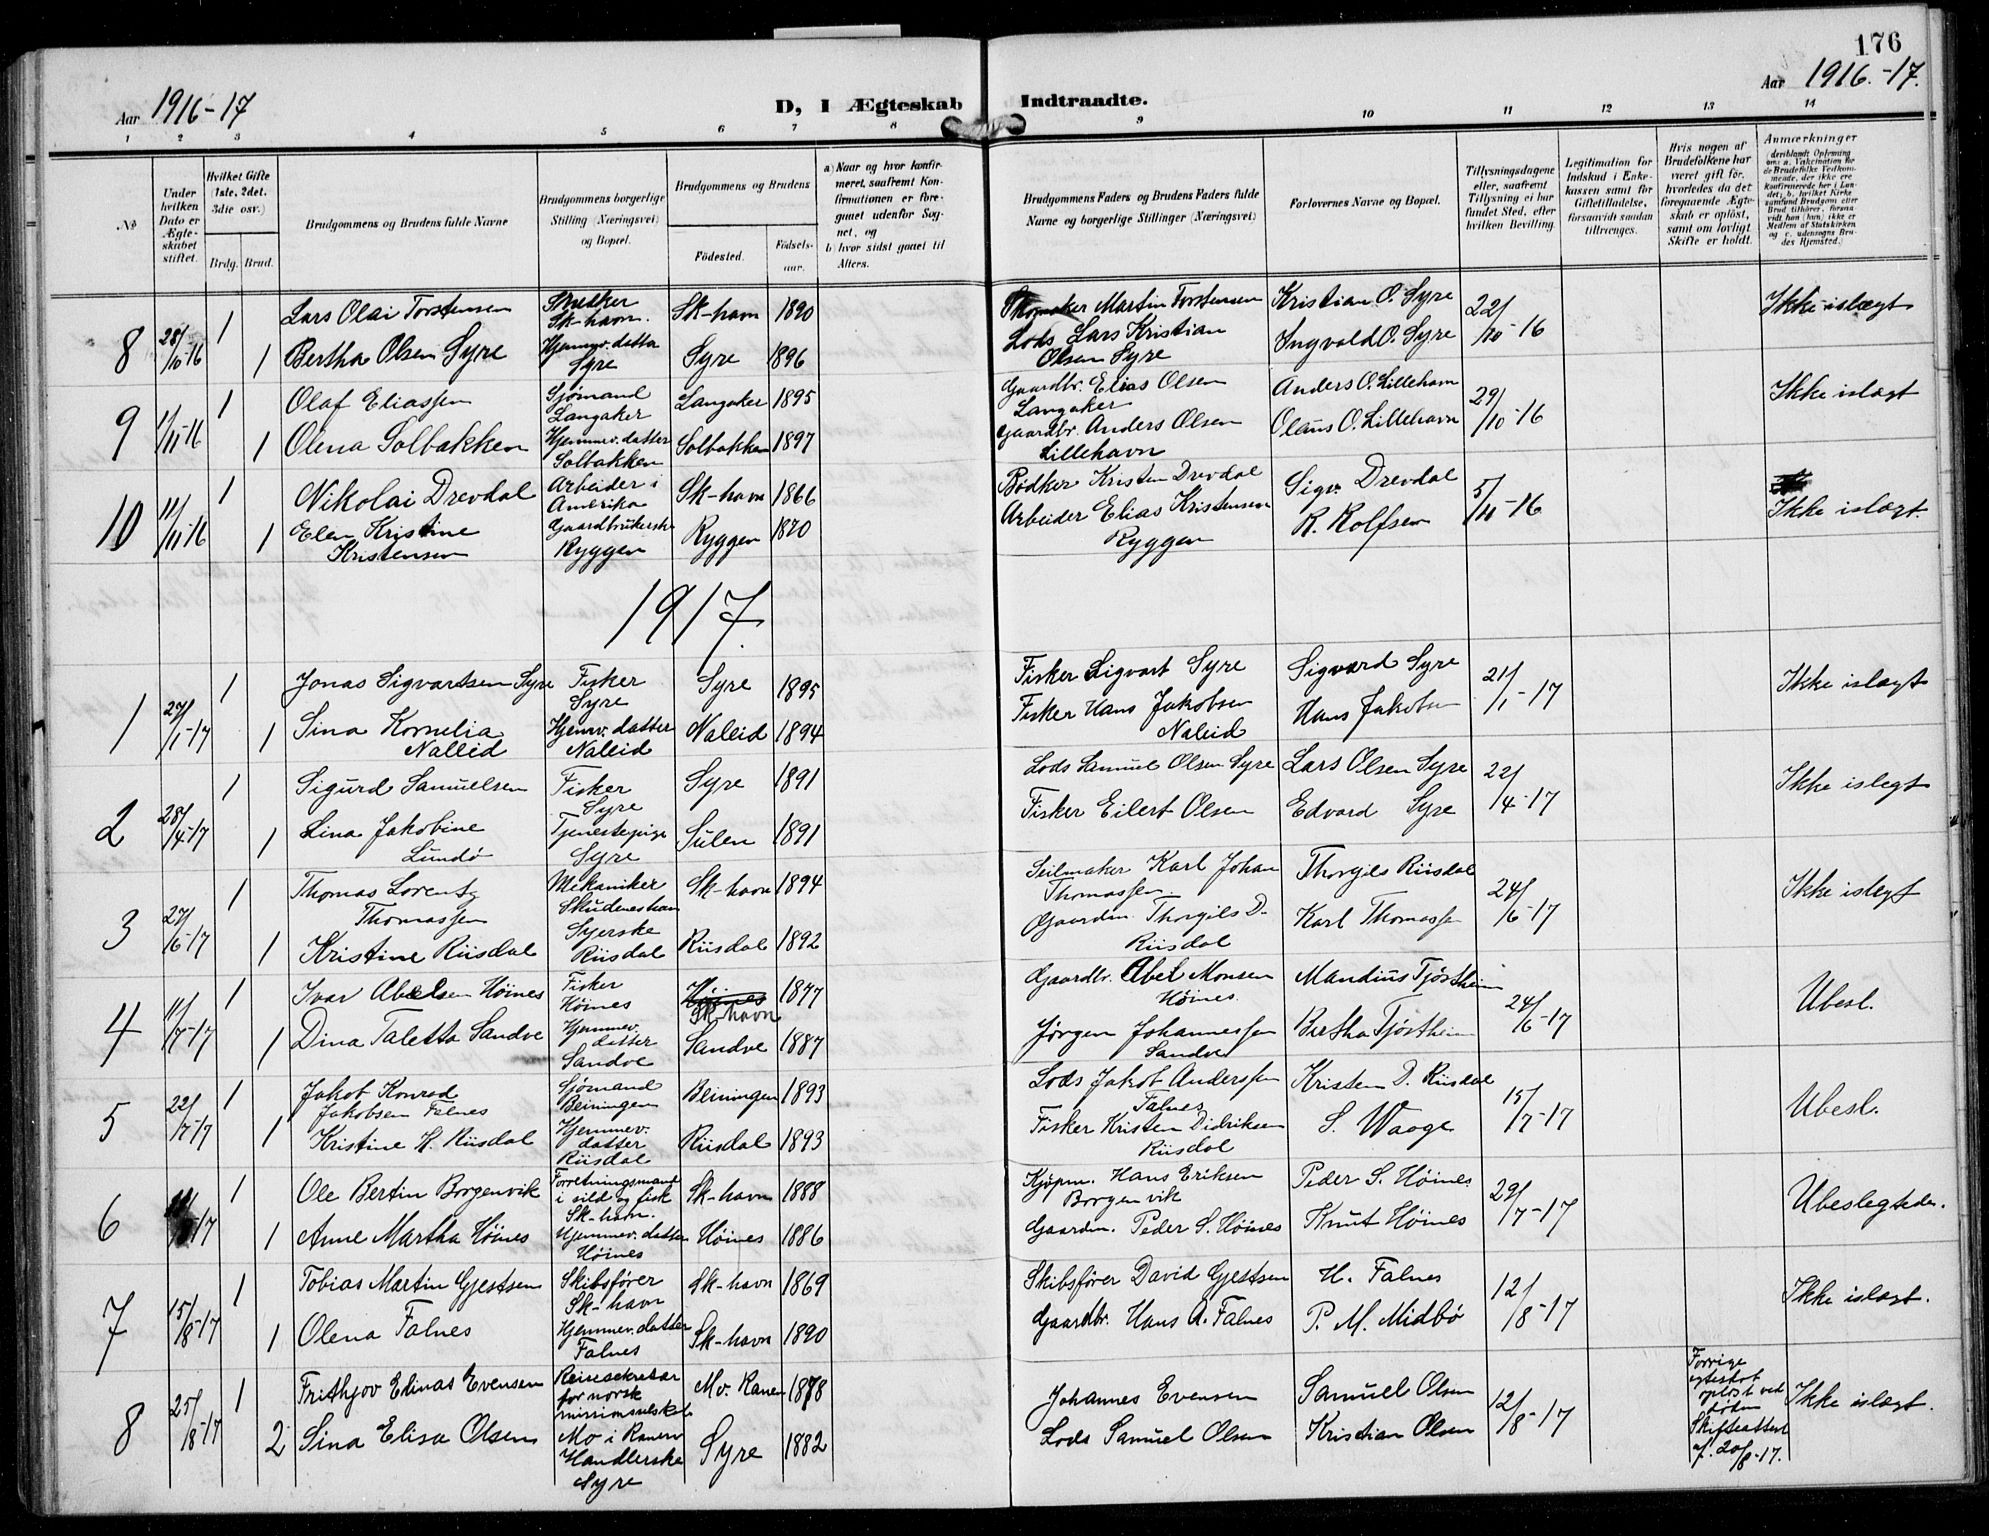 176
Aar 1916-17
D, I Ægteskab Indtraadte.
Aar 1916.-17.
1 2 3 4 5 6 7 8 9 10 11 12 13 14
No
Under hvilken Dato er Ægteskabet stiftet.
Hvilket Gifte (1ste, 2det, 3die osv.)
Brdg. Brud.
Brudgommens og Brudens fulde Navne
Brudgommens borgerlige Stilling (Næringsvei) og Bopæl.
Brudgommens og Brudens
Fødested.
Fødselsaar.
a) Naar og hvor konfirmeret, saafremt Konfirmationen er foregaaet udenfor Sognet, og
b) hvor sidst gaaet til Alters.
Brudgommens Faders og Brudens Faders fulde Navne og borgerlige Stillinger (Næringsvei)
Forlovernes Navne og Bopæl.
Tillysningsdagene eller, saafremt Tillysning ei har fundet Sted, efter hvilken Bevilling.
Legitimation for Indskud i Enkekassen samt for Giftetilladelse, forsaavidt saadan tiltrænges.
Hvis nogen af Brudefolkene har været gift før, hvorledes da det foregaaende Ægteskab er opløst, samt om lovligt Skifte er holdt.
Anmærkninger
8 28/10-16 1 Lars Olai Torstensen Snedker Sk-havn. Sk-havn 1890 Martin Torstensen Kristian O. Syre 22/10-16 Ikke islægt
1 Bertha Olsen Syre Hjemmv. datter Syre Syre 1896 Lods Lars Kristian Olsen Syre Ingvald O. Syre
9 11/11-16 1 Olaf Eliassen Sjømand Langaker Langaker 1895 Gaardbr. Elias Olsen Langaker Anders O. Lillehavn 29/10-16 Ikke islægt
1 Olena Solbakken Hjemmev. datter Solbakken Solbakken 1897 Gaardbr. Anders Olsen Lillehavn Olaus O. Lillehavn
10 11/11-16 1 Nikolai Drevdal Arbeider i Amerika Sk-havn 1866 Bødker Kristen Drevdal Sigv. Drevdal 5/11-16 Ikke islægt.
1 Elen Kristine Kristensen Ryggen Ryggen 1870 Arbeider Elias Kristensen Ryggen R. Rolfsen
1917
1 27/1-17 1 Jonas Sigvartsen Syre Fisker Syre Syre 1895 Fisker Sigvart Syre Sigvard Syre 21/1-17 Ikke islægt
1 Sina Kornelia Naleid Hjemv. datter Naleid Naleid 1894 Fisker Hans Jakobsen Naleid Hans Jakobsen
2 28/4-17 1 Sigurd Samuelsen Fisker Syre Syre 1891 Lods Samuel Olsen Syre Lars Olsen Syre 22/4-17 Ikke islegt
1 Lina Jakobine Lundø Tjenestepige Syre Sulen 1891 Fisker Eilert Olsen Edvard Syre
3 27/6-17 1 Thomas Lorentz Thomassen Mekaniker Skudeneshavn Sk-havn 1894 Seilmaker Karl Johan Thomassen Thorgils Riisdal 24/6-17 Ikke islegt
1 Kristine Riisdal Syerske Riisdal Riisdal 1892 Gaardm. Thorgils D. Riisdal Karl Thomassen
4 11/7-17 1 Ivar Abelsen Høines Fisker Høines Høines Sk-havn 1877 Gaardbr. Abel Monsen Høines. Mandius Tjøstheim 24/6-17 Ubesl.
1 Dina Taletta Sandve Hjemmev. datter Sandve Sandve 1887 Jørgen Johannessen Sandve Bertha Tjøstheim
5 22/7-17 1 Jakob Konrad Jakobsen Falnes Sjømand Beiningen Beiningen 1893 Lods Jakob Anderssen Falnes Kristen D. Riisdal 15/7-17 Ubesl.
1 Kristine H. Riisdal Hjemmev. datter Riisdal Riisdal 1893 Fisker Kristen Didriksen Riisdal S. Waage
6 1 Ole Bertin Borgenvik Forretningsmand i sild og fisk Sk-havn. Sk-havn 1888 Kjøpm. Hans Eriksen Borgenvik Peder S. Høines. 29/7-17 Ubeslegtede.
1 Anne Martha Høines Hjemmev. datter Høines Høines 1886 Gaardm. Peder S. Høines Knut Høines
7 15/8-17 1 Tobias Martin Gjestsen Skibsfører Sk-havn Sk-havn 1869 Skibsfører David Gjestsen H. Falnes 12/8-17 Ikke islægt.
1 Olena Falnes Hjemmev. datter Falnes Sk-havn 1890 Gaardbr. Hans A. Falnes P. M. Midbø
8 25/8-17 1 Frithjov Elinas Evensen Reisesekretær for norsk missionsselskab Mo i Ranen Mo. Ranen 1878 Johannes Evensen Samuel Olsen 12/8-17 Forrige egteskab opløst ved døden Skifteattest af. 20/8-17. Ikke islægt.
2 Sina Elisa Olsen Handlerske Syre Syre 1882 Lods Samuel Olsen Kristian Olsen